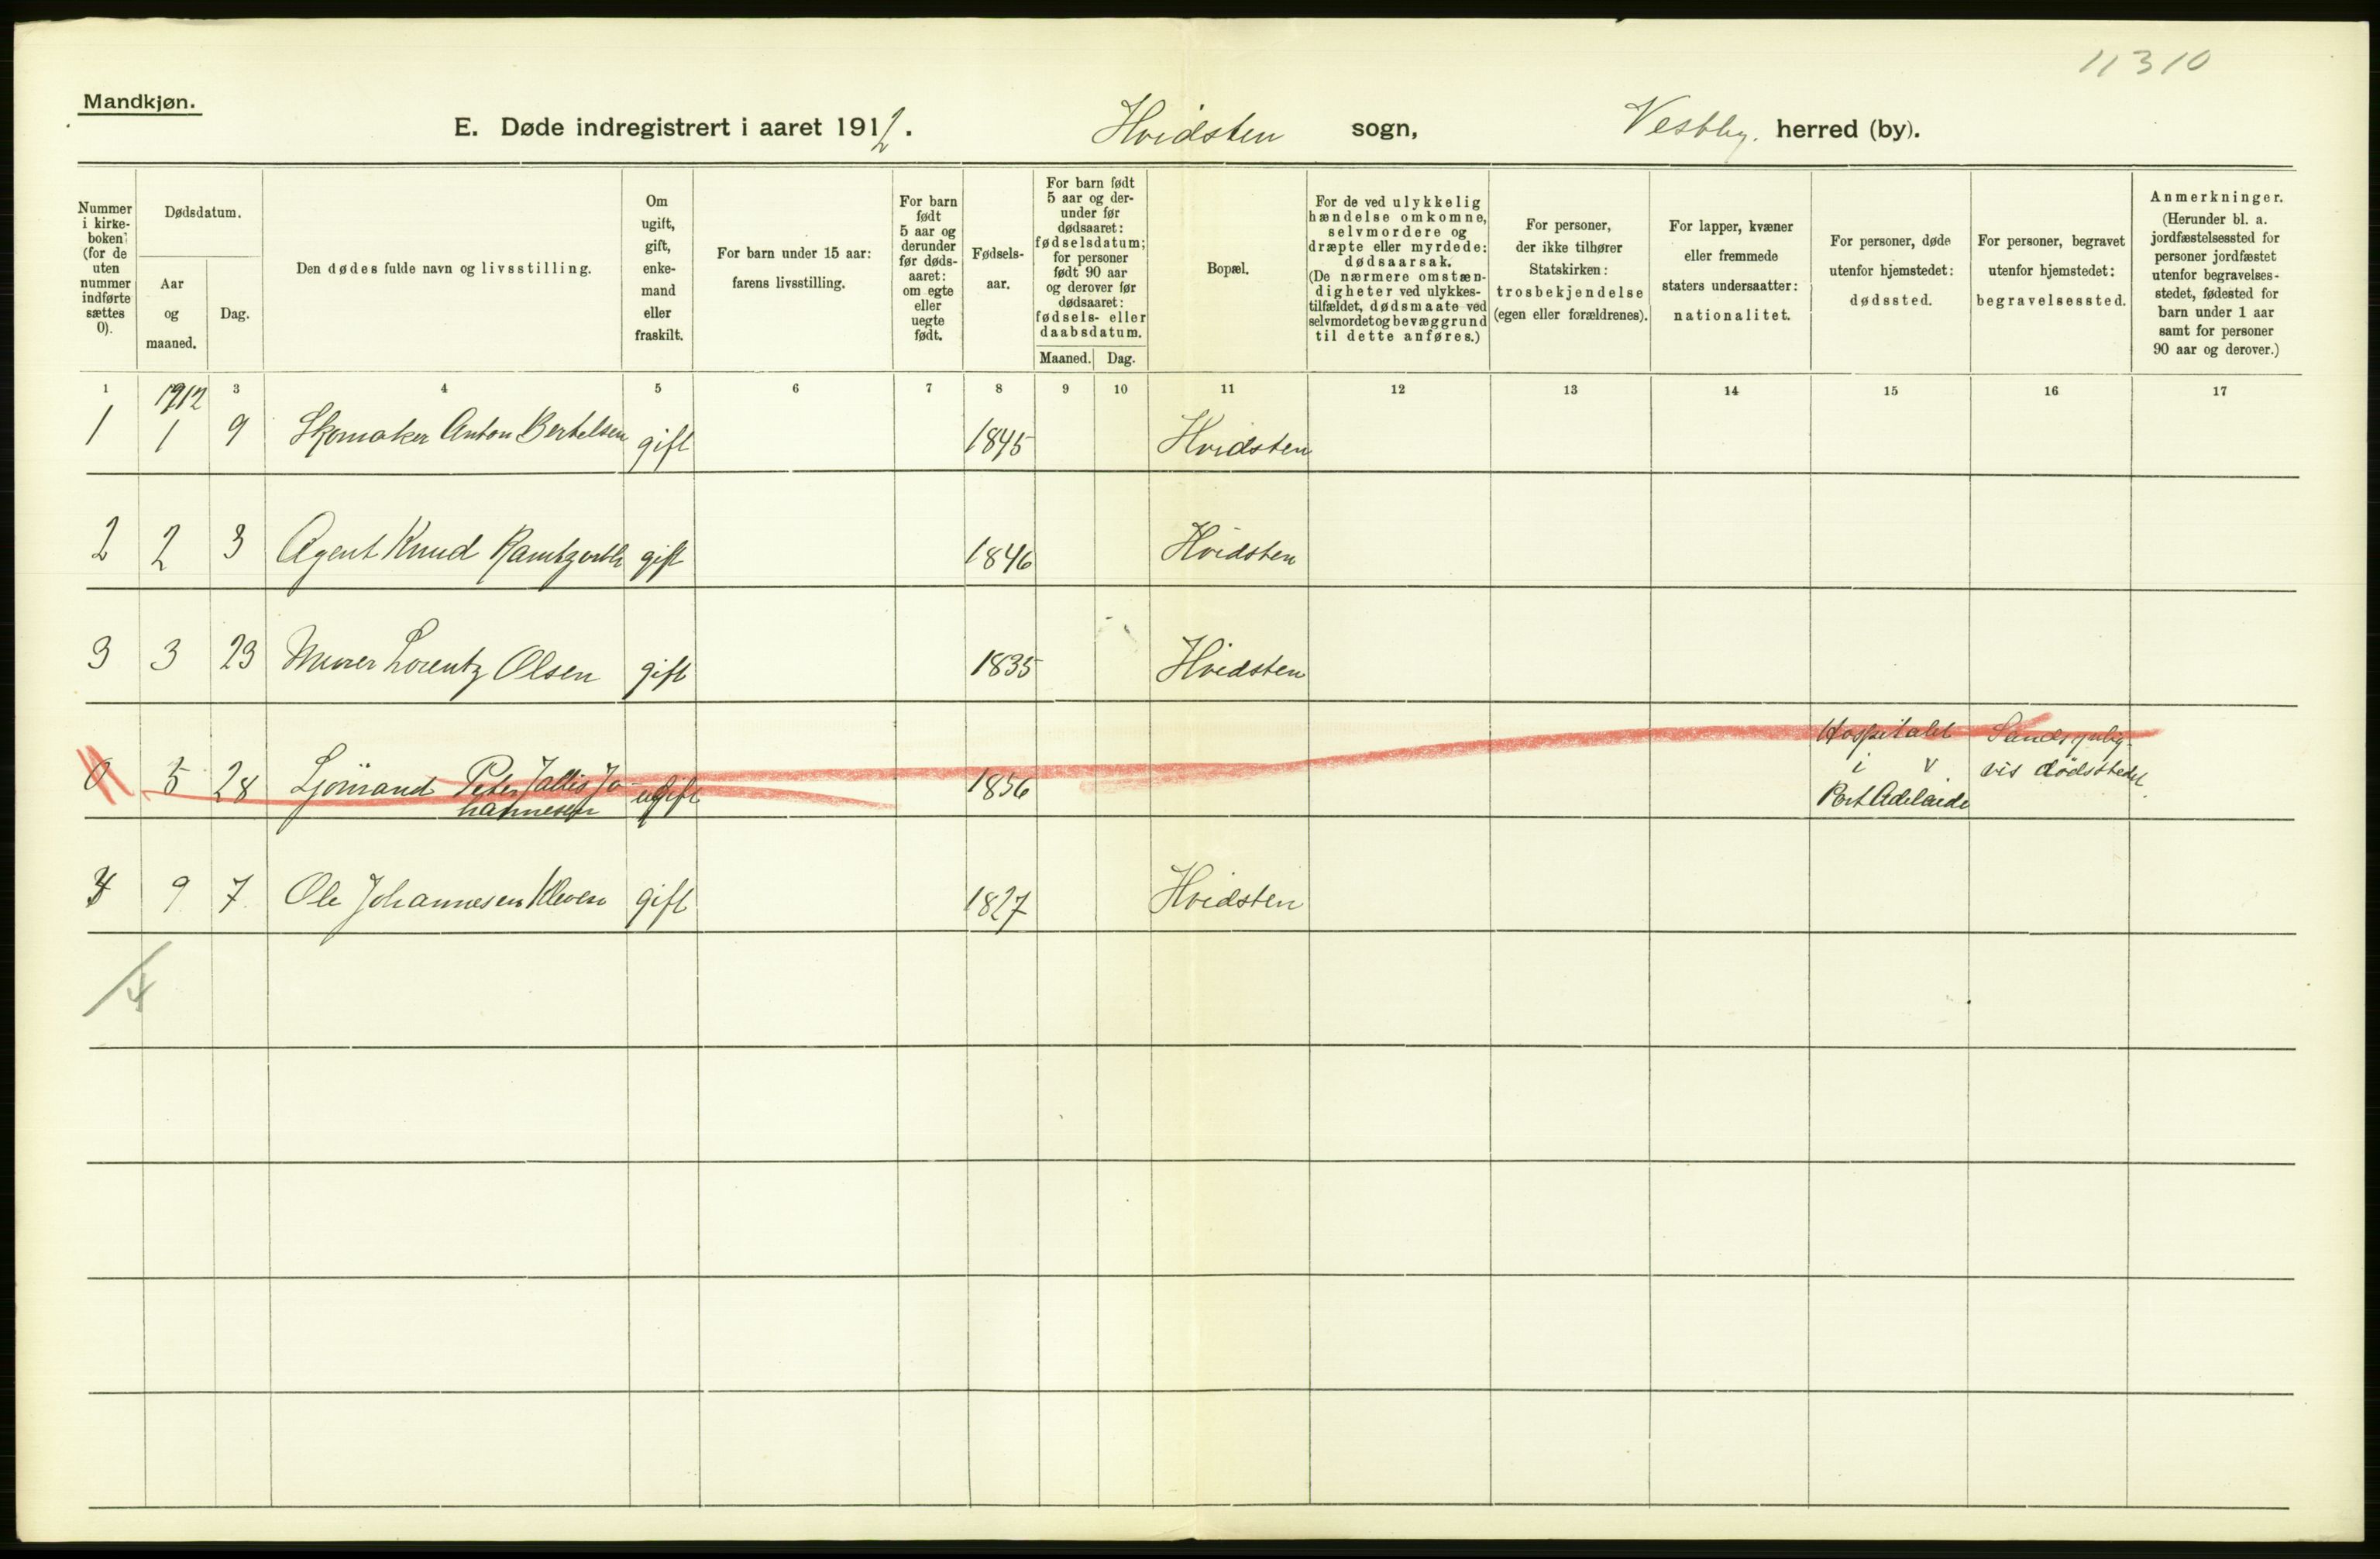 11310
Mandkjøn.
E. Døde indregistrert i aaret 1912. Hvidsten sogn, Vestby. herred (by).
Nummer i kirke-boken (for de uten nummer indførte sættes 0).
Dødsdatum.
Aar og maaned.
Dag.
Den dødes fulde navn og livsstilling.
Om ugift, gift, enke-mand eller fraskilt.
For barn under 15 aar: farens livsstilling.
For barn født 5 aar og derunder før døds-aaret: om egte eller uegte født.
Fødsels-aar.
For barn født 5 aar og der-under før dødsaaret: fødselsdatum; for personer født 90 aar og derover før dødsaaret: fødsels- eller daabsdatum.
Maaned. Dag.
Bopæl.
For de ved ulykkelig hændelse omkomne, selvmordere og dræpte eller myrdede: dødsaarsak. (De nærmere omstæn-digheter ved ulykkes-tilfældet, dødsmaate ved selvmordet og bevæggrund til dette anføres.)
For personer, der ikke tilhører Statskirken: trosbekjendelse (egen eller forældrenes).
For lapper, kvæner eller fremmede staters undersaatter: nationalitet.
For personer, døde utenfor hjemstedet: dødssted.
For personer, begravet utenfor hjemstedet: begravelsessted.
Anmerkninger. (Herunder bl. a. jordfæstelsessted for personer jordfæstet utenfor begravelses-stedet, fødested for barn under 1 aar samt for personer 90 aar og derover.)
1 3 4 5 6 7 8 9 10 11 12 13 14 15 16 17
1912
1 1 9 Skomaker Anton Bertelsen gift 1845 Hvidsten
2 2 3 Agent Knud gift 1846 Hvidsten
3 3 23 Murer Lorentz Olsen gift 1835 Hvidsten
0 5 28 Sjömand Peter Jo- ugift 1856 Hospitalet Sandsynlig-
hannesen i Port Adelaide vis dødsstedet.
4 9 7 Ole Johannesen Kleven gift 1827 Hvidsten
4